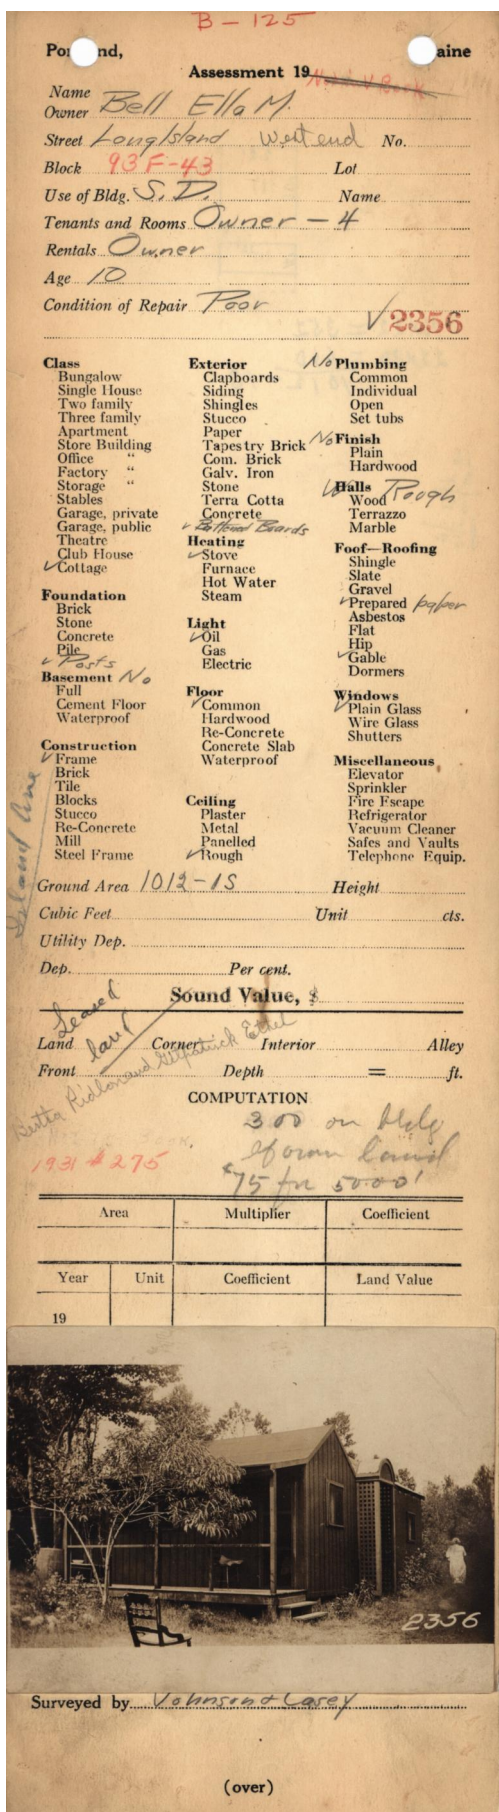 B - 125
Po nd, aine
Assessment 19
Name
Owner Bell Ella M.
Street Long Island West end No.
Block 93F-43 Lot
Use of Bldg. S.D. Name
Tenants and Rooms Owner - 4
Rentals Owner
Age 10
Condition of Repair Poor
✓2356
Class
Bungalow
Single House
Two family
Three family
Apartment
Store Building
Office "
Factory "
Storage "
Stables
Garage, private
Garage, public
Theatre
Club House
✓Cottage
Foundation
Brick
Stone
Concrete
Pile
✓ Posts
Basement No
Full
Cement Floor
Waterproof
Construction
✓Frame
Brick
Tile
Blocks
Stucco
Re-Concrete
Mill
Steel Frame
Island Ave
Exterior
Clapboards
Siding
Shingles
Stucco
Paper
Tapestry Brick
Com. Brick
Galv. Iron
Stone
Terra Cotta
Concrete
✓ Battened Boards
Heating
✓Stove
Furnace
Hot Water
Steam
Light
✓Oil
Gas
Electric
Floor
✓Common
Hardwood
Re-Concrete
Concrete Slab
Waterproof
Ceiling
Plaster
Metal
Panelled
✓Rough
No Plumbing
Common
Individual
Open
Set tubs
No Finish
Plain
Hardwood
Halls
Wood Rough
Terrazzo
Marble
Foof—Roofing
Shingle
Slate
Gravel
✓Prepared paper
Asbestos
Flat
Hip
✓Gable
Dormers
Windows
✓Plain Glass
Wire Glass
Shutters
Miscellaneous
Elevator
Sprinkler
Fire Escape
Refrigerator
Vacuum Cleaner
Safes and Vaults
Telephone Equip.
Ground Area 1012-1S Height
Cubic Feet Unit cts.
Utility Dep.
Dep. Per cent.
Sound Value, $
Leased
land
Land Corner Interior Alley
Front Depth = ft.
Ridlon and Gilpatrick Ethel
COMPUTATION
300 on bldg
if own land
$75 for 5000'
1931 # 275
Area Multiplier Coefficient
Year Unit Coefficient Land Value
19
2356
Surveyed by Johnson & Casey
(over)